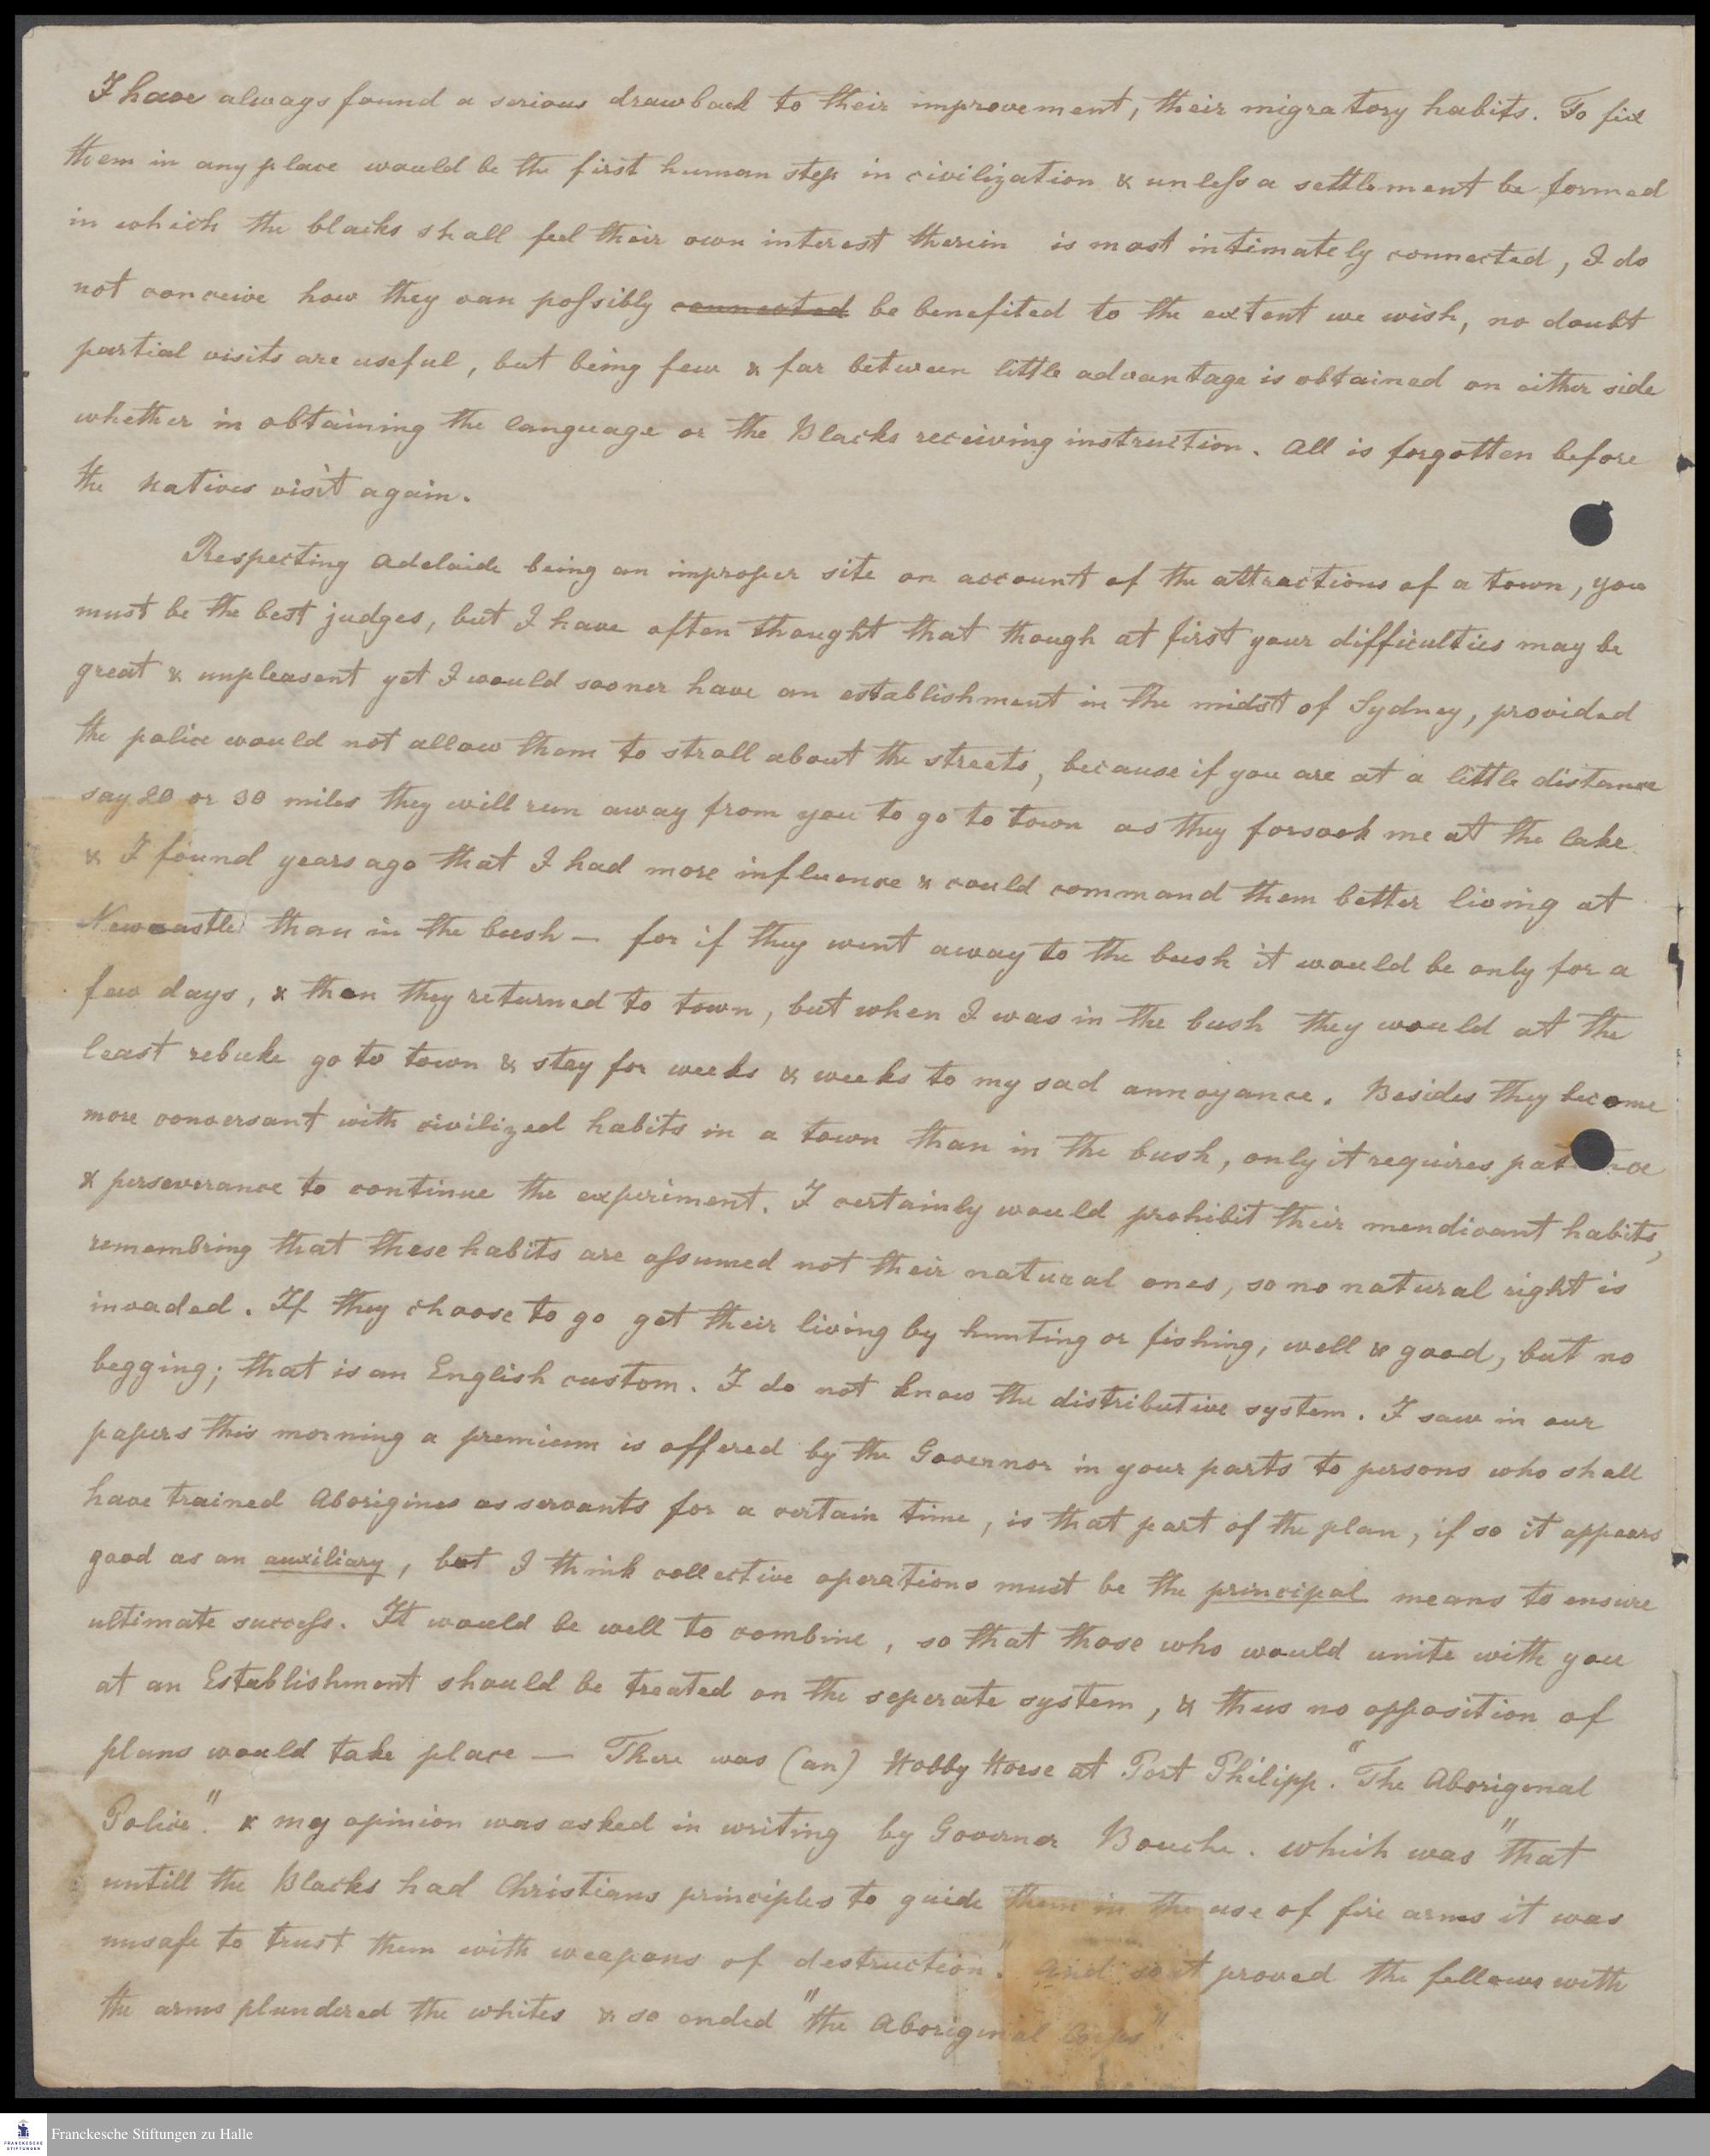 I have always found a serious drawback to their improvement, their migratory habits. To fix
them in any place would be the first human step in civilization & unless a settlement be formed
in which the blacks shall feel their own interest therein is most intimately connected, I do
not conceive how they can possibly connected be benefited to the extent we wish, no doubt
partial visits are useful, but being few & far between little advantage is obtained on either side
whether in obtaining the language or the Blacks receiving instruction. All is forgotten before
the Natives visit again.
Respecting Adelaide being an improper site on account of the attractions of a town, you
must be the best judges, but I have often thought that though at first your difficulties may be
great & unpleasent yet I would sooner have an establishment in the midst of Sydney, provided
the police would not allow them to stroll about the streets, because if you are at a little distance
say 20 or 30 miles they will run away from you to go to town as they forsook me at the lake
& I found years ago that I had more influence & could command them better living at
Newcastle than in the bush — for if they went away to the bush it would be only for a
few days, & then they returned to town, but when I was in the bush they would at the
least rebuke go to town & stay for weeks & weeks to my sad annoyance. Besides they become
more conversant with civilized habits in a town than in the bush, only it requires pat nce
& perseverance to continue the experiment. I certainly would prohibit their mendicant habits,
remembring that these habits are assumed not their natural ones, so no natural right is
invaded. If they choose to go get their living by hunting or fishing, well & good, but no
begging; that is an English custom. I do not know the distributive system. I saw in our
papers this morning a premium is offered by the Governor in your parts to persons who shall
have trained Aborigines as servants for a certain time, is that part of the plan, if so it appears
good as an auxiliary, but I think collective operations must be the principal means to ensure
ultimate success. It would be well to combine, so that those who would unite with you
at an Establishment should be treated on the seperate system, & thus no opposition of
plans would take place — There was (an) Hobby Horse at Port Philipp. "The Aborigenal
Police". & my opinion was asked in writing by Governor Bouche. which was "that
untill the Blacks had Christians principles to guide them in the use of fire arms it was
unsafe to trust them with weapons of destruction". And so it proved the fellows with
the arms plundered the whites & so ended "the Aboriginal Corps"
Franckesche Stiftungen zu Halle
FRANCKESCHE
STIFTUNGEN